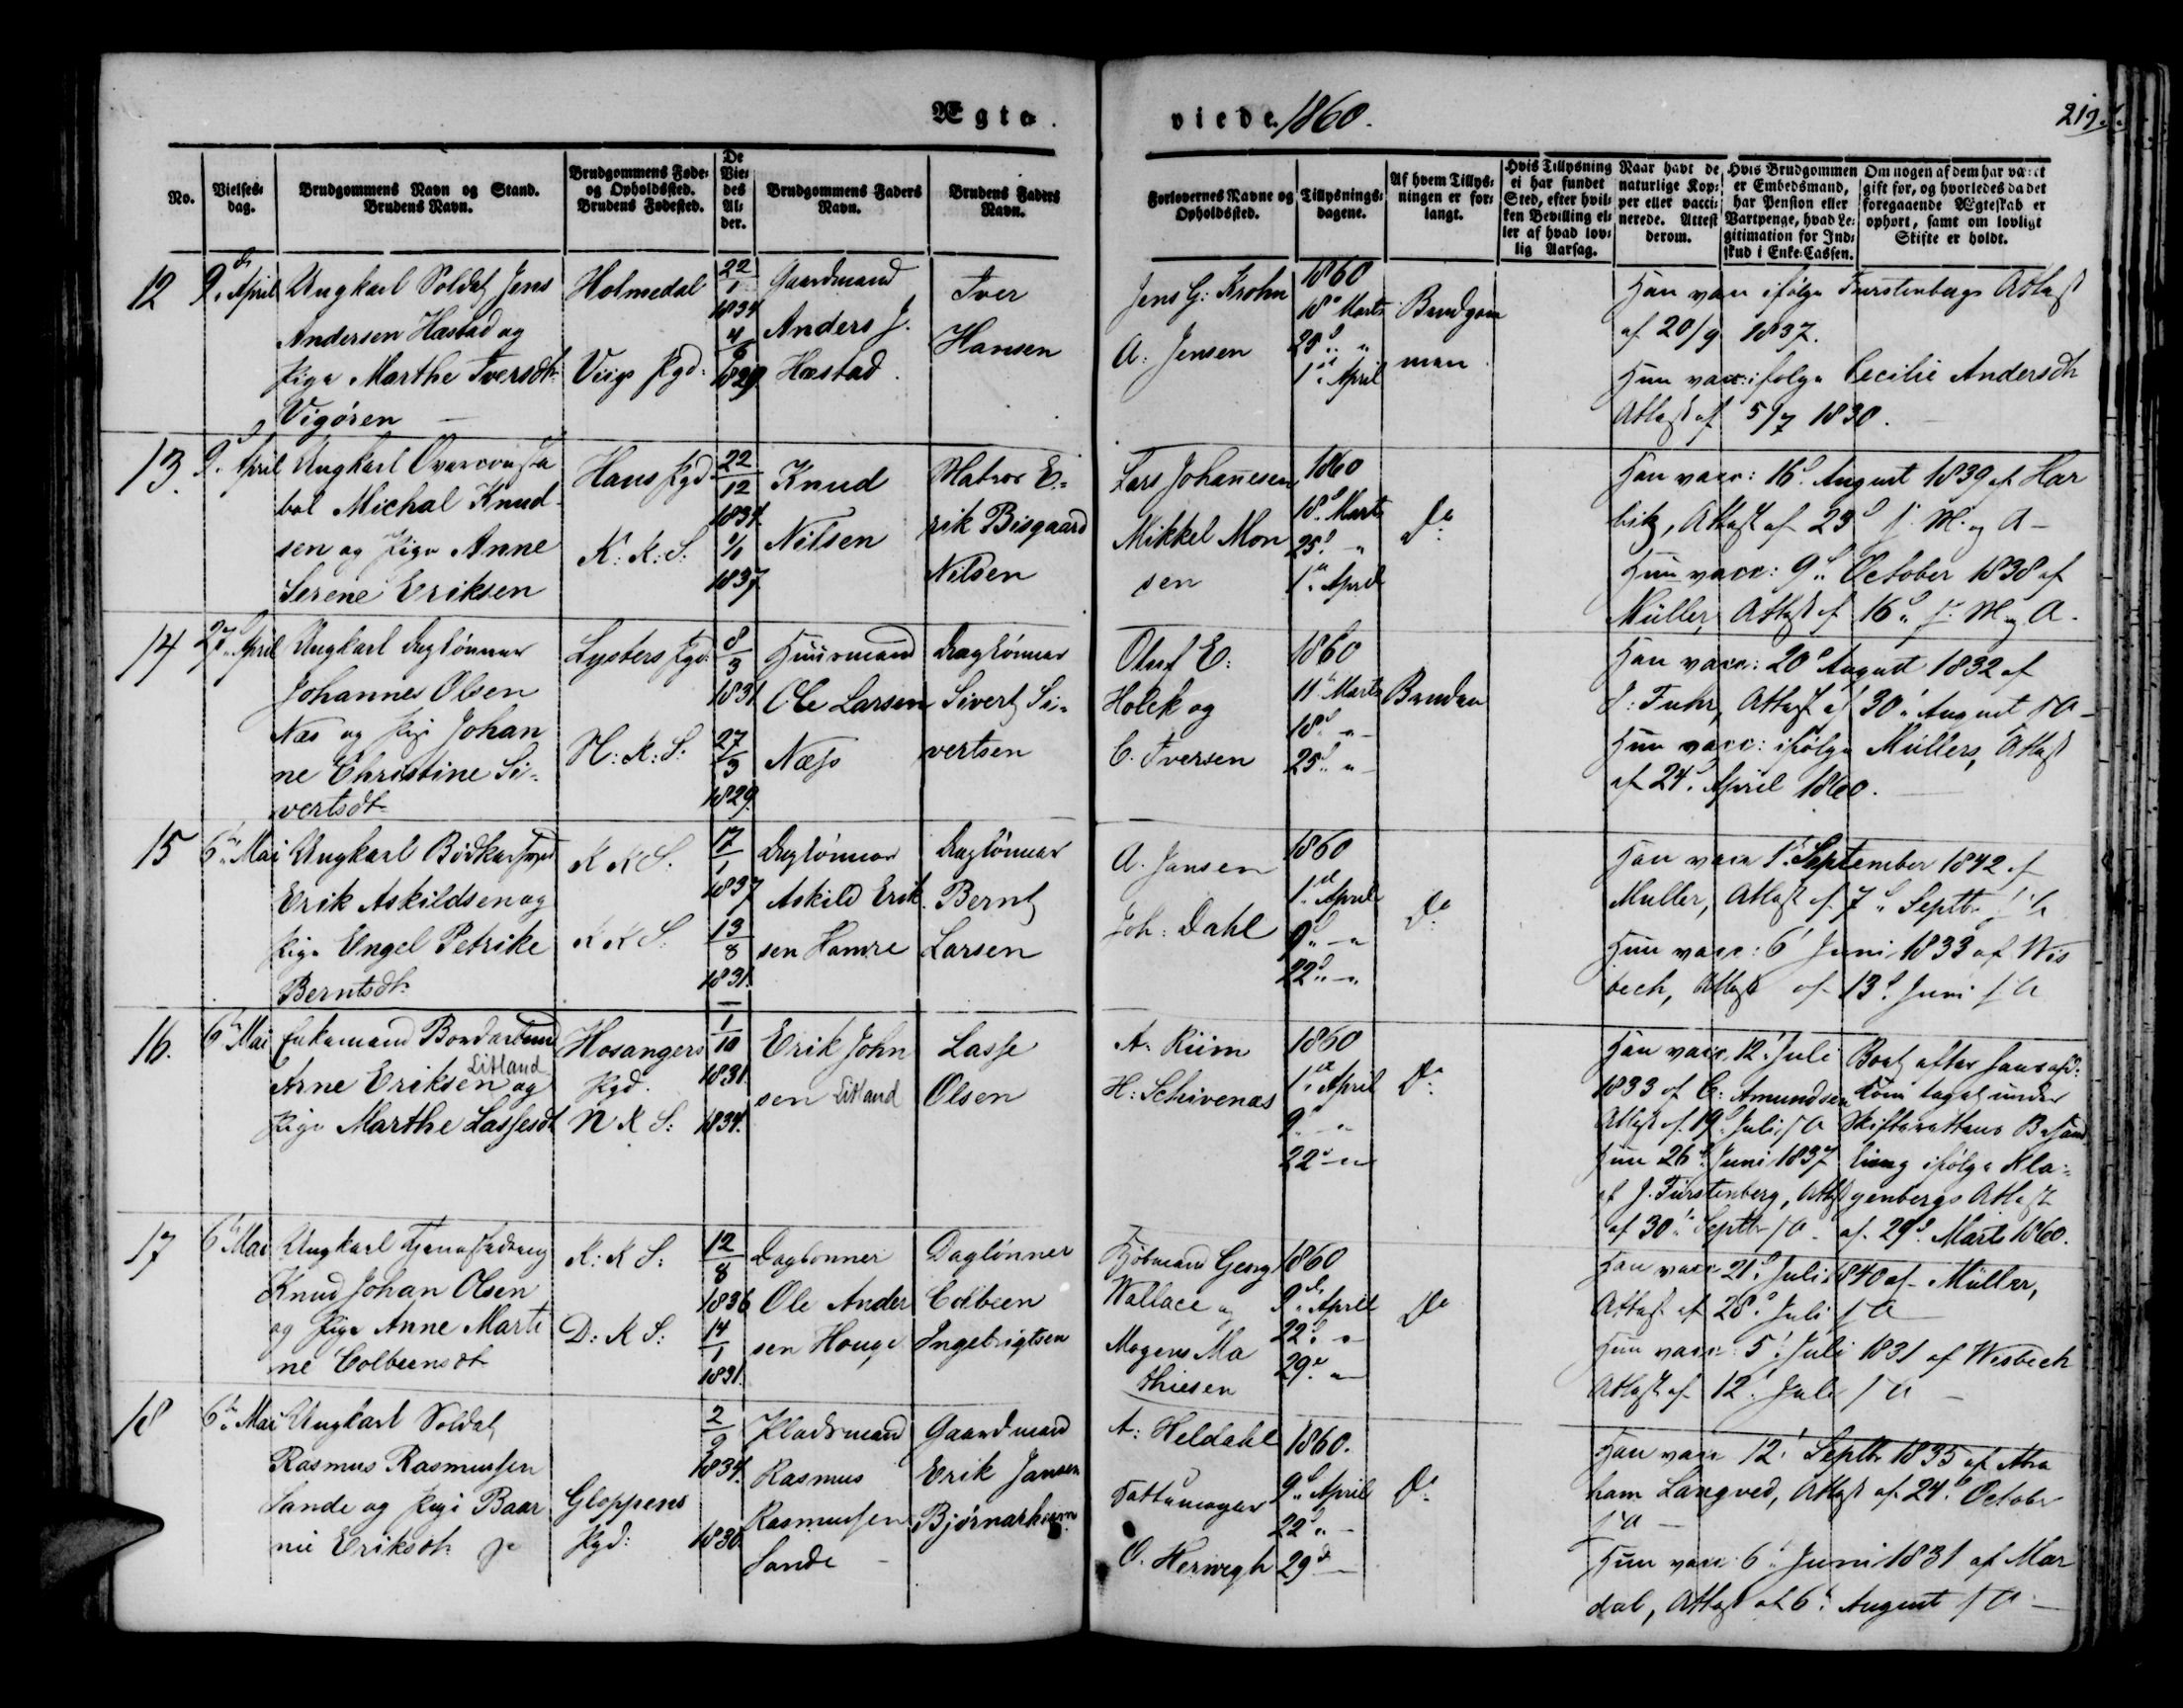 Ægte
viede. 1860.
No.
Vielses-
dag.
Brudgommens Navn og Stand.
Brudens Navn.
Brudgommens Føde-
og Opholdssted.
Brudens Fødested.
De
Vie-
des
Al-
der.
Brudgommens Faders
Navn.
Brudens Faders
Navn.
Forlovernes Navne og
Opholdssted.
Tillysnings-
dagene.
Af hvem Tillys-
ningen er for-
langt.
Hvis Tillysning
ei har fundet
Sted, efter hvil-
ken Bevilling el-
ler af hvad lov-
lig Aarsag.
Naar havt de
naturlige Kop-
per eller vacci-
nerede. Attest
derom.
Hvis Brudgommen
er Embedsmand,
har Pension eller
Vartpenge, hvad Le-
gitimation for Ind-
skud i Enke-Cassen.
Om nogen af dem har været
gift før, og hvorledes da det
foregaaende Ægteskab er
ophørt, samt om lovligt
Skifte er holdt.
12
9de April
Ungkarl Soldat Jens
Andersen Hæstad og
Pige Marthe Iversdtr
Vigøren
Holmedal
Viigs Pgd:
22/1
1834
4/6
1829
Gaardmand
Anders J.
Hæstad.
Iver
Hansen
Jens G: Krohn
A: Jensen
1860
18d Marts
25d "
1st April
Brudgom
men
Han vacc ifølge Furstenbergs Attest
af 20/9 1837.
Hun vacc: ifølge Cecilie Andersdtr
Attest af 5/7 1830.
13.
9d April
Ungkarl Overconsta
bel Michal Knud-
sen og Pige Anne
Serene Eriksen
Haus Pgd
K: K: S:
22/12
1834
1/1
1837
Knud
Nilsen
Matros E-
rik Bisgaard
Nilsen
Lars Johannesen
Mikkel Mon
sen
1860
18d Marts
25d "
1st April
Do
Han vacc: 16d August 1839 af Har
bitz, Attest af 23d s. M. og A -
Hun vacc: 9d October 1838 af
Müller, Attest af 16d s. M. og A.
14
27d April
Ungkarl Daglønner
Johannes Olsen
Næs og Pige Johan
ne Christine Si-
vertsdtr
Lysters Pgd:
H: K: S:
8/3
1831
27/3
1829
Huusmand
Ole Larsen
Næss
Daglønner
Sivert Si-
vertsen
Oluf E:
Holek og
C. Iversen
1860
11te Marts
18d "
25d "
Bruden
Han vacc: 20d August 1832 af
J: Fuhr, Attest af 30te August s A -
Hun vacc: ifølge Müllers, Attest
af 24d April 1860.
15
6te Mai
Ungkarl Bødkersvend
Erik Askildsen og
Pige Engel Petrike
Berntsdtr
K K S.
K K S:
17/1
1837
13/8
1831.
Daglønner
Askild Erik
sen Hamre
Daglønner
Bernt
Larsen
A. Jansen
Joh: Dahl
1860
1st April
9d "
22d "
Do
Han vacc 1ste September 1842 af
Muller, Attest af 7d Septbr s A
Hun vacc: 6te Juni 1833 af Wis
bech, Attest af 13d Juni s A
16.
6te Mai
Enkemand
Arne Eriksen og
Litland
Pige Marthe Lassesdtr
Hosangers
Pgd.
N K S:
1/10
1831
1834.
Erik John
sen Litland
Lasse
Olsen
A. Riim
H: Schivenæs
1860
1st April
9d "
22d "
Do
Han vacc 12te Juli
1833 af C: Amundsen
Attest af 19d Juli s A
Hun 26d Juni 1837
af J. Fürstenberg, Attest
af 30te Septbr s A
Boet efter hans afd:
Kone taget under
Skifterettens Behand
ling ifølge Kla-
genbergs Attest
af 29d Marts 1860.
17
6te Mai
Ungkarl Tjenestedreng
Knud Johan Olsen
og Pige Anne Marti
ne Colbeensdtr
K: K S:
D: K S:
12/8
1836
14/1
1831.
Daglønner
Ole Ander
sen Houge
Daglønner
Colbeen
Ingebrigtsen
Kjøbmand Georg
Wallace og
Mogens Ma
thiesen
1860
9de April
22d "
29d "
Do
Han vacc 21d Juli 1840 af Müller,
Attest af 28d Juli s A
Hun vacc: 5te Juli 1831 af Wisbech
Attest af 12te Juli s A -
18
6te Mai
Ungkarl Soldat
Rasmus Rasmussen
Sande og Pige Baar
nie Eriksdtr
Gloppens
Pgd:
2/9
1834.
1830
Pladsmand
Rasmus
Rasmussen
Sande -
Gaardmand
Erik Jansen
Bjørnarheim
A: Heldahl
Fattemager
O. Herwegh
1860.
9d April
22d "
29d
Do
Han vacc 12te Septbr 1835 af Abra
ham Langved, Attest af 24de October
s A -
Hun vacc 6te Juni 1831 af Mar
dal, Attest af 6te August s A -